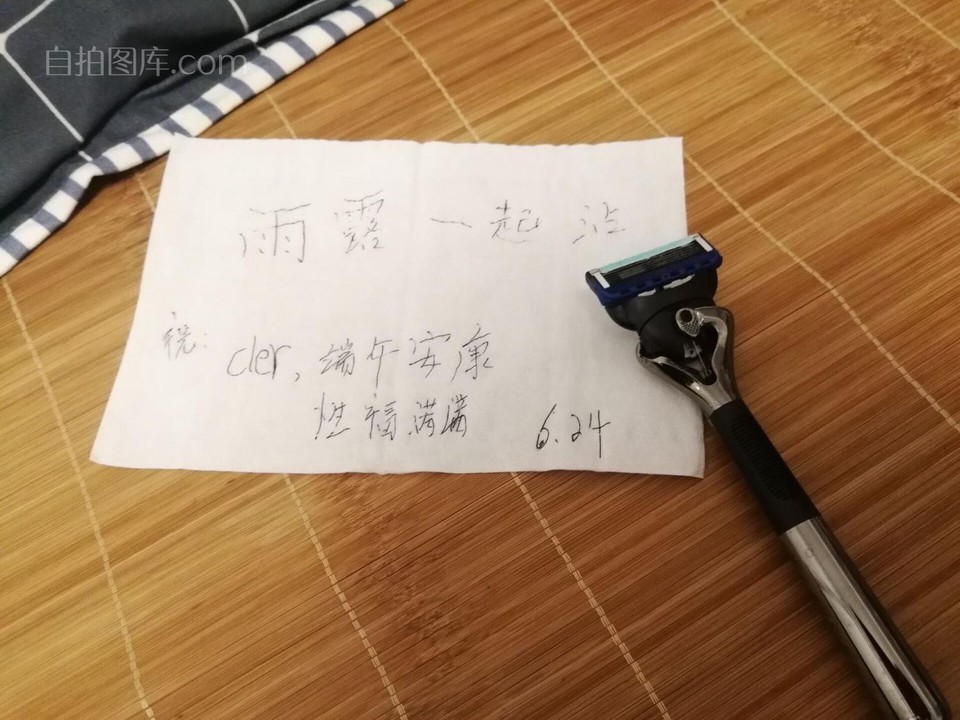 自拍图库.com
雨露一起沾
祝:
cler, 端午安康
性福满满
6.24